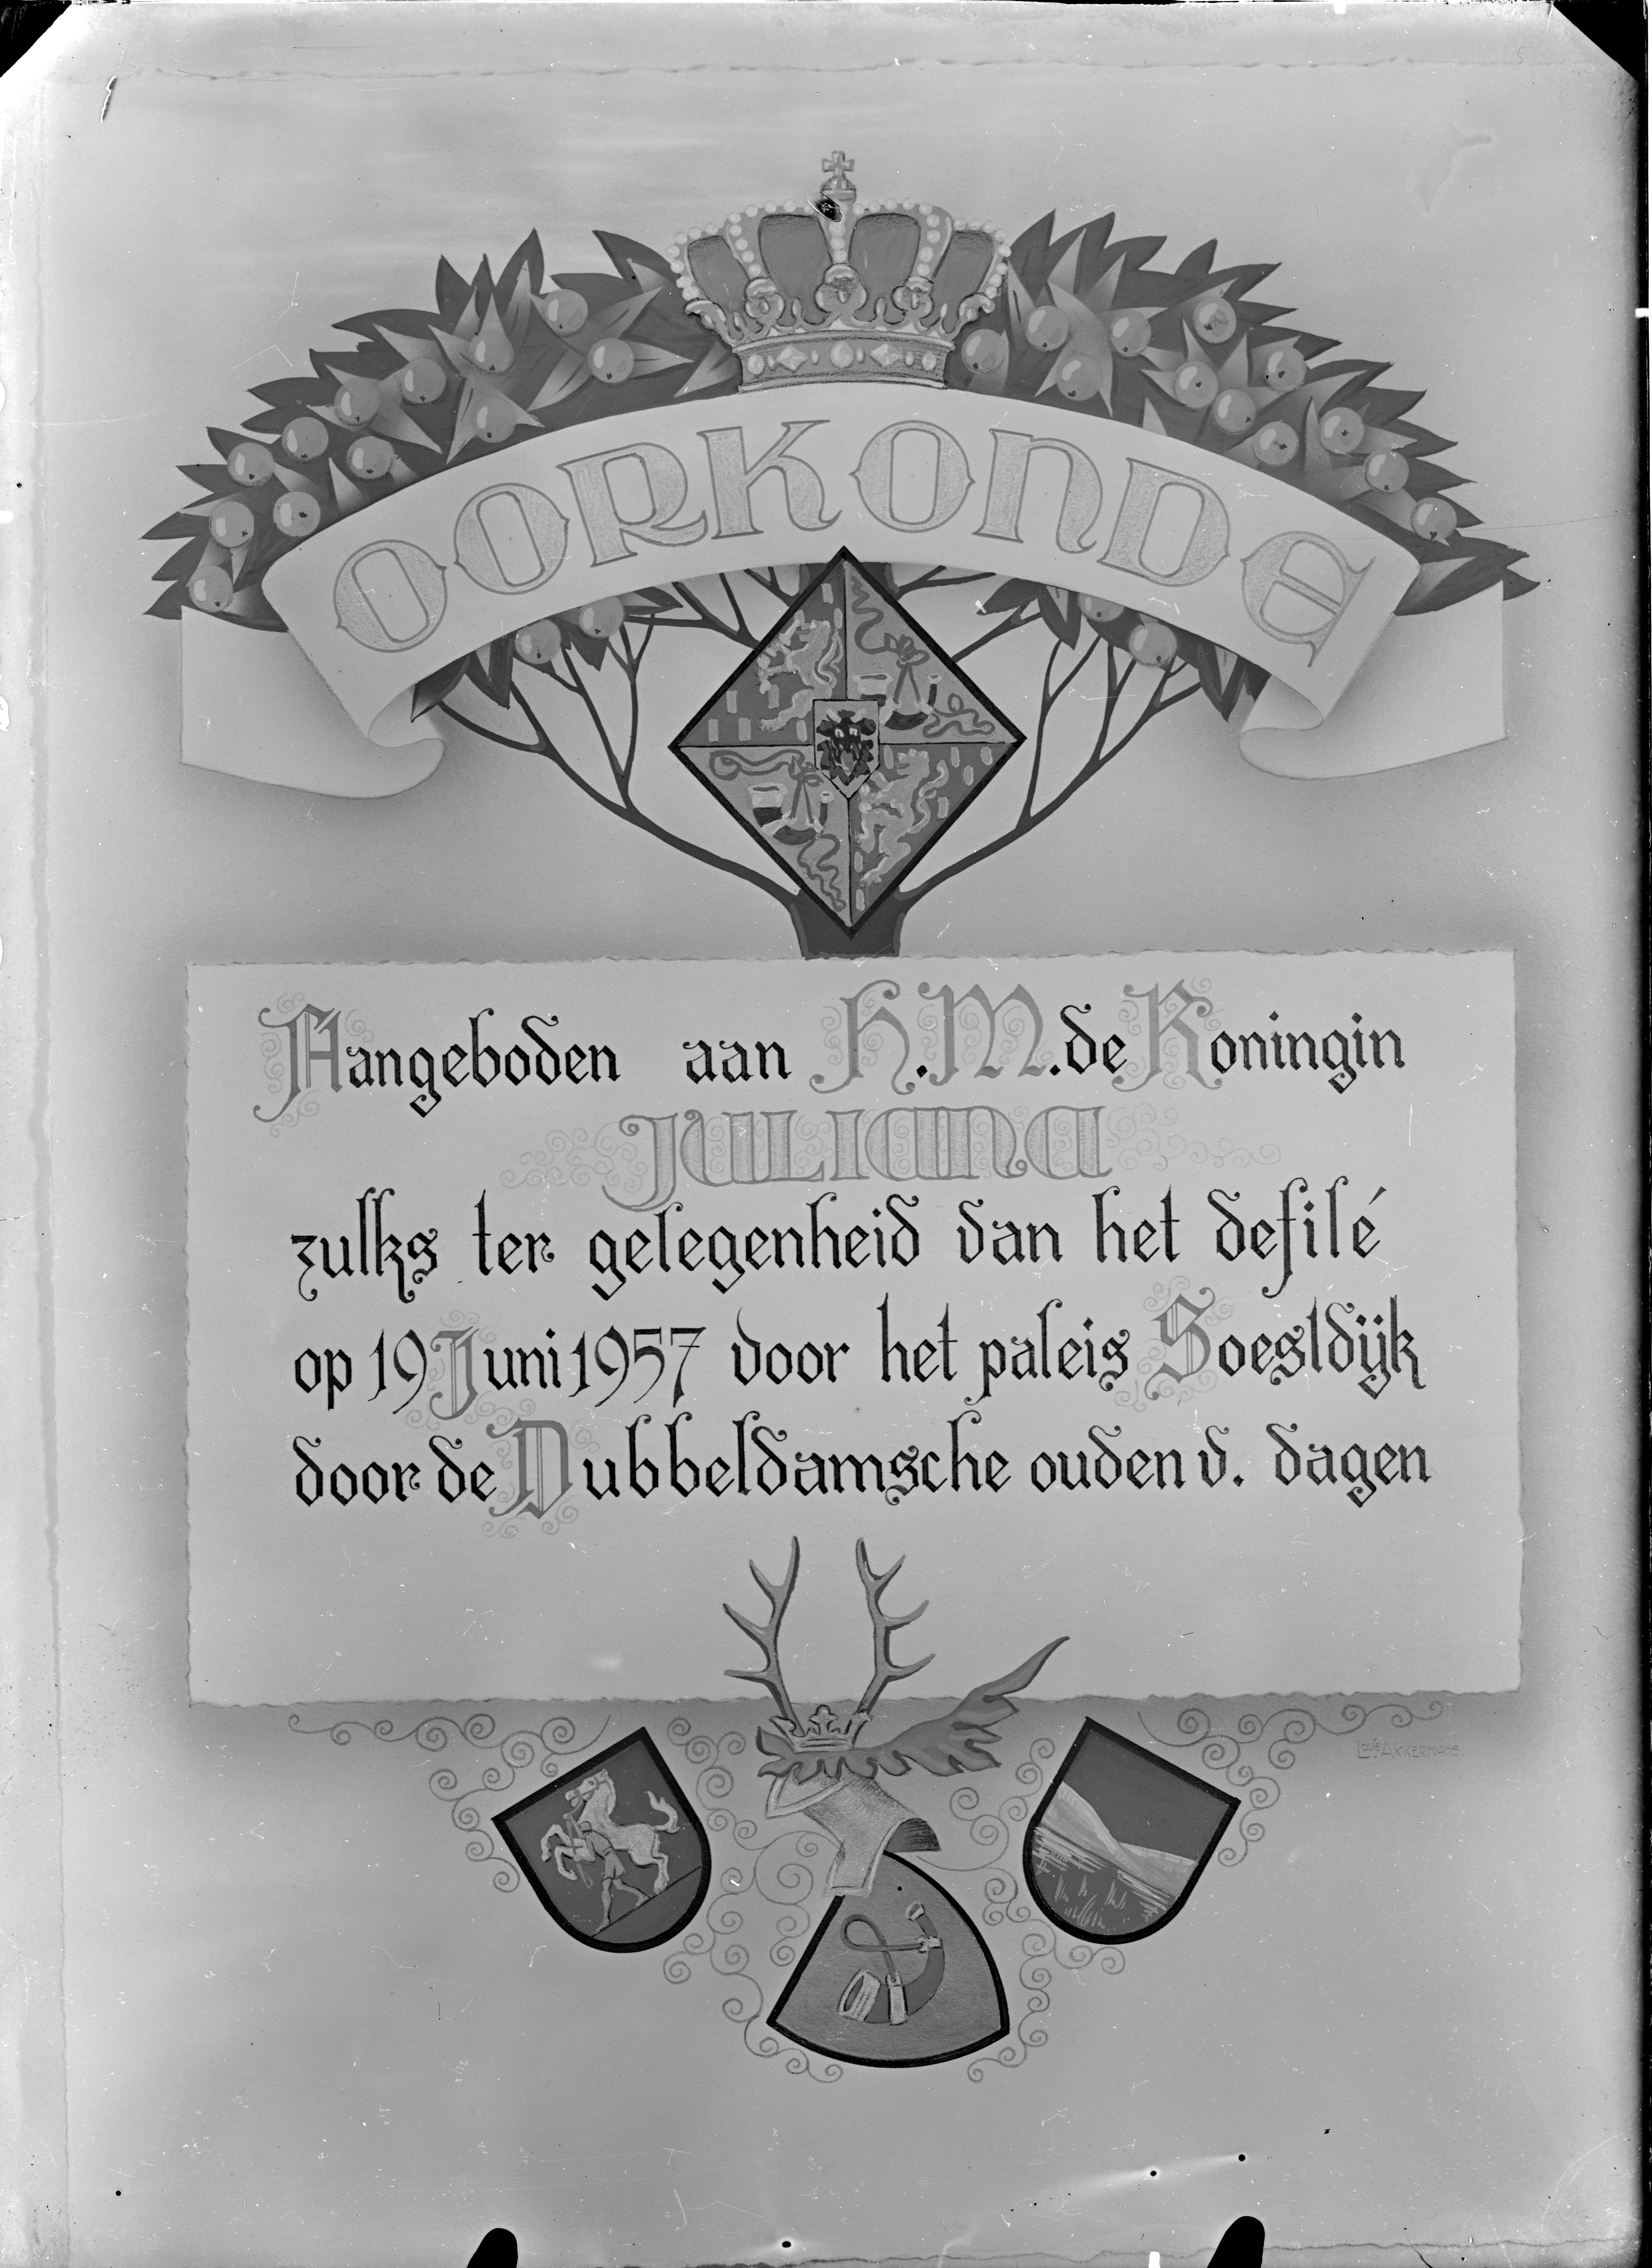 OORKONDE
Aangeboden aan H.M. de Koningin
JULIANA
zulks ter gelegenheid van het defilé
op 19 Juni 1957 voor het paleis Soestdijk
door de Dubbeldamsche ouden v. dagen
AKKERMANS